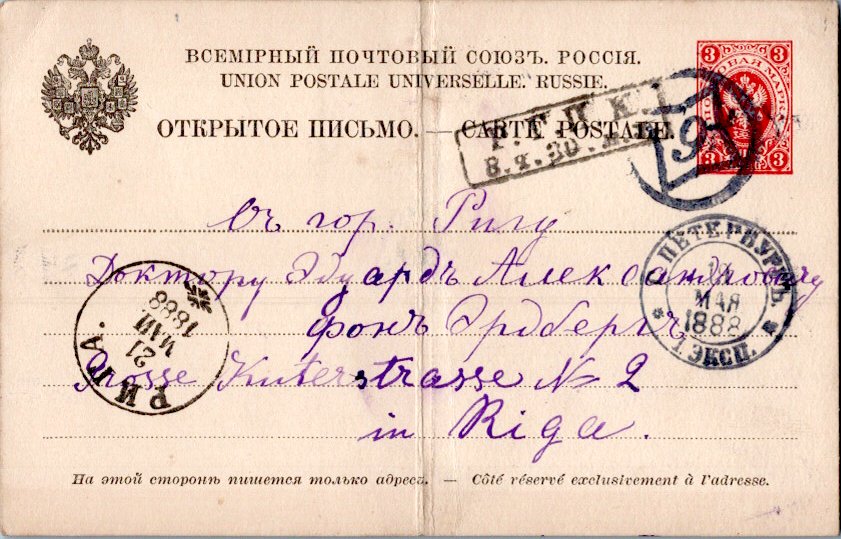 ВСЕМІРНЫЙ ПОЧТОВЫЙ СОЮЗЪ. РОССІЯ.
UNION POSTALE UNIVERSELLE. RUSSIE.
ОТКРЫТОЕ ПИСЬМО. — CARTE POSTALE.
3 3
ПОЧТОВАЯ МАРКА
3 3
8.Ч.30.
9
Въ гор. Ригу
Доктору Эдуардъ Александровичу
фонъ Эрдбергъ
Grosse Küterstrasse № 2
in Riga.
С.ПЕТЕРБУРГЪ.
МАЯ
1888
1 ЭКСП.
РИГА.
21
МАЙ
1888
На этой сторонѣ пишется только адресъ. — Côté réservé exclusivement à l'adresse.